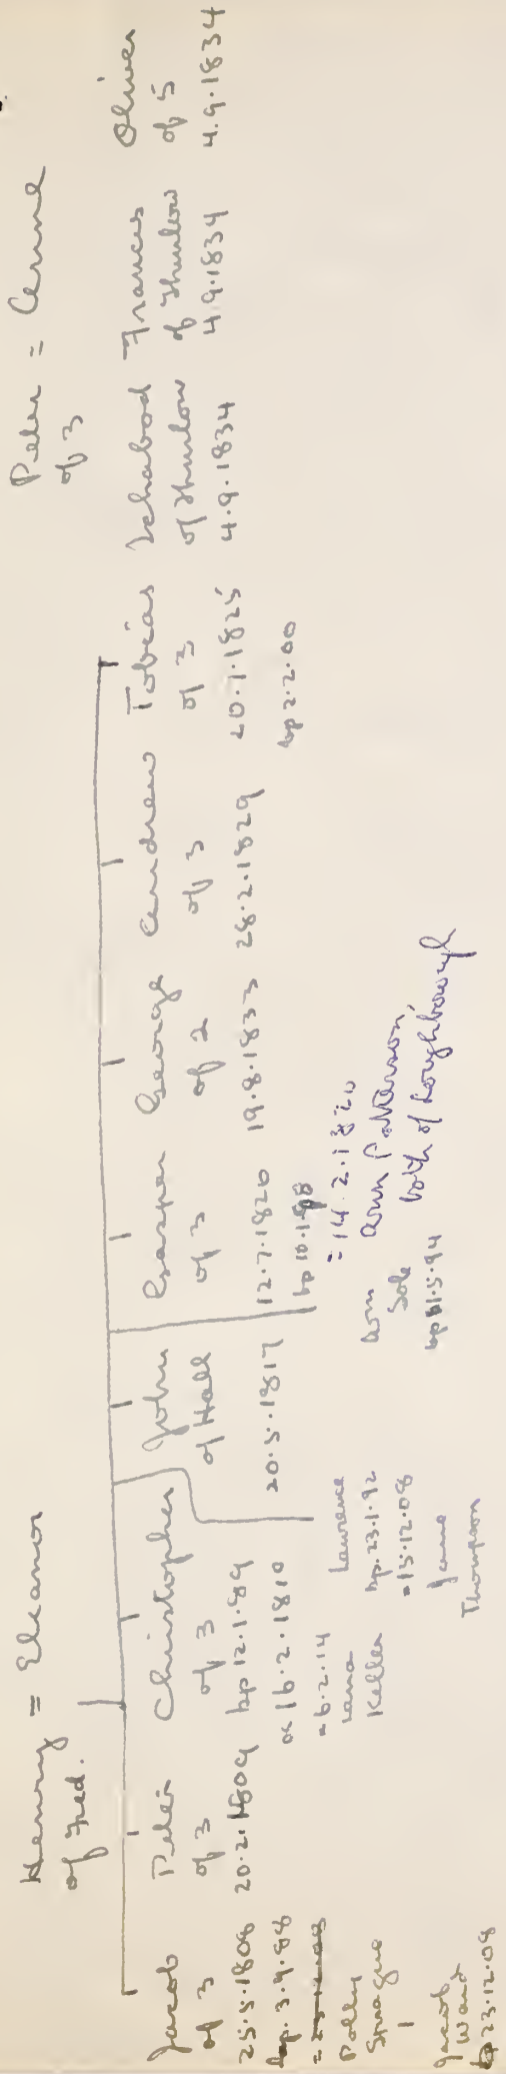 Henry = Eleanor
of Fred.
Peter = Anne
of 3
Jacob
of 3
25.5.1808
bp. 3.9.88
Polly
Sprague
Jacob
Ward
bp 23.12.08
Peter
of 3
20.2.1809
Christopher
of 3
bp 12.1.89
ac 16.2.1810
= 6.2.14
Lana
Keller
Laurence
bp. 23.1.92
= 15.12.08
Jane
Thompson
John
of Hall
20.5.1817
Ann
Sole
bp 1.5.94
Casper
of 3
12.7.1820
bp 10.1.98
= 14.2.1820
Ann Patterson,
both of Loughborough
George
of 2
19.8.1833
Andrew
of 3
28.2.1829
Tobias
of 3
20.7.1825
bp 2.2.00
Ichabod
of Thurlow
4.9.1834
Frances
of Thurlow
4.9.1834
Oliver
of 5
4.9.1834